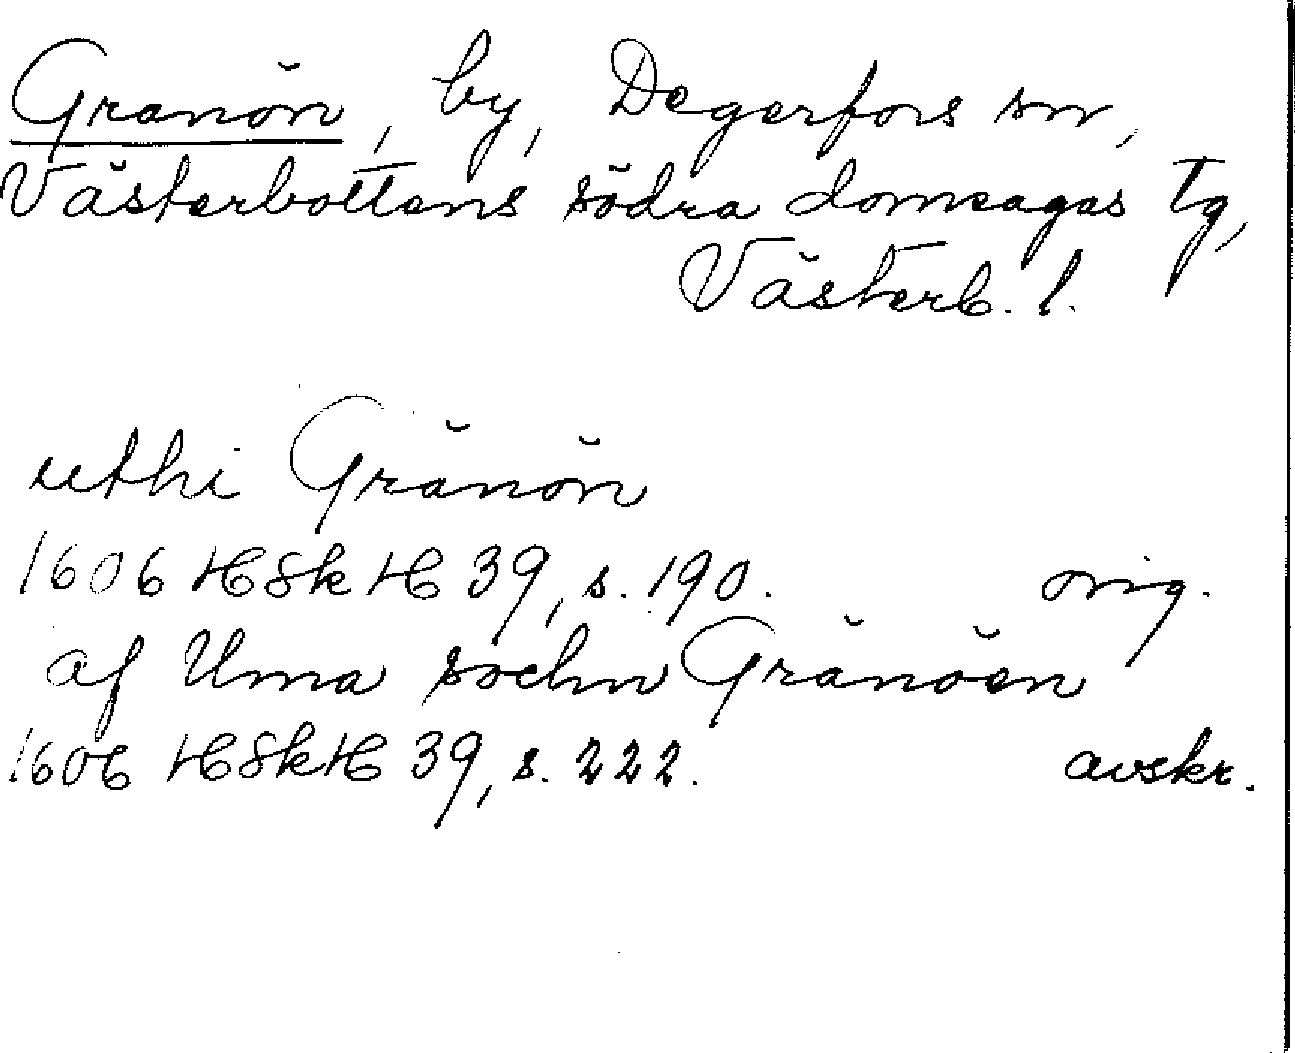 Granön, by, Degerfors sn,
Västerbottens södra domsagas tg,
Västerb. l.
uthi Gränön
1606 HSkH 39, s. 190. orig.
af Uma sochn Gränöen
1606 HSkH 39, s. 222. avskr.